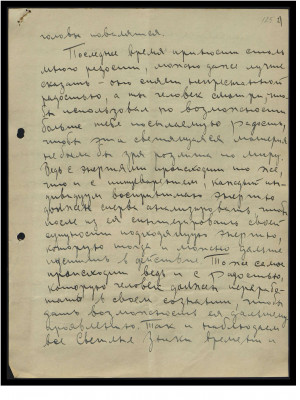 головы появляются.
Последнее время приносит столь
много радостей, можно даже лучше
сказать – оно сияет непрестанной
радостью, а ты человек смотри что-
бы использовал по возможности
больше тебе посылаемую радость,
чтобы эта светящаяся материя
не была бы зря розлита по миру.
Ведь с энергиями происходит то же,
что и с пищеварением, каждый ин-
дивидуум воспринимая энергию
должен сперва анализировать, чтобы
после из её синтезировать своей
сущности подходящую энергию,
которую тогда и можно дальше
пустить в действие. То же самое
происходит ведь и с радостью,
которую человек должен перерабо-
тать в своем сознании, чтобы
дать возможность её дальнему
проявлению. Так и наблюдаем
все Светлые Знаки времени и